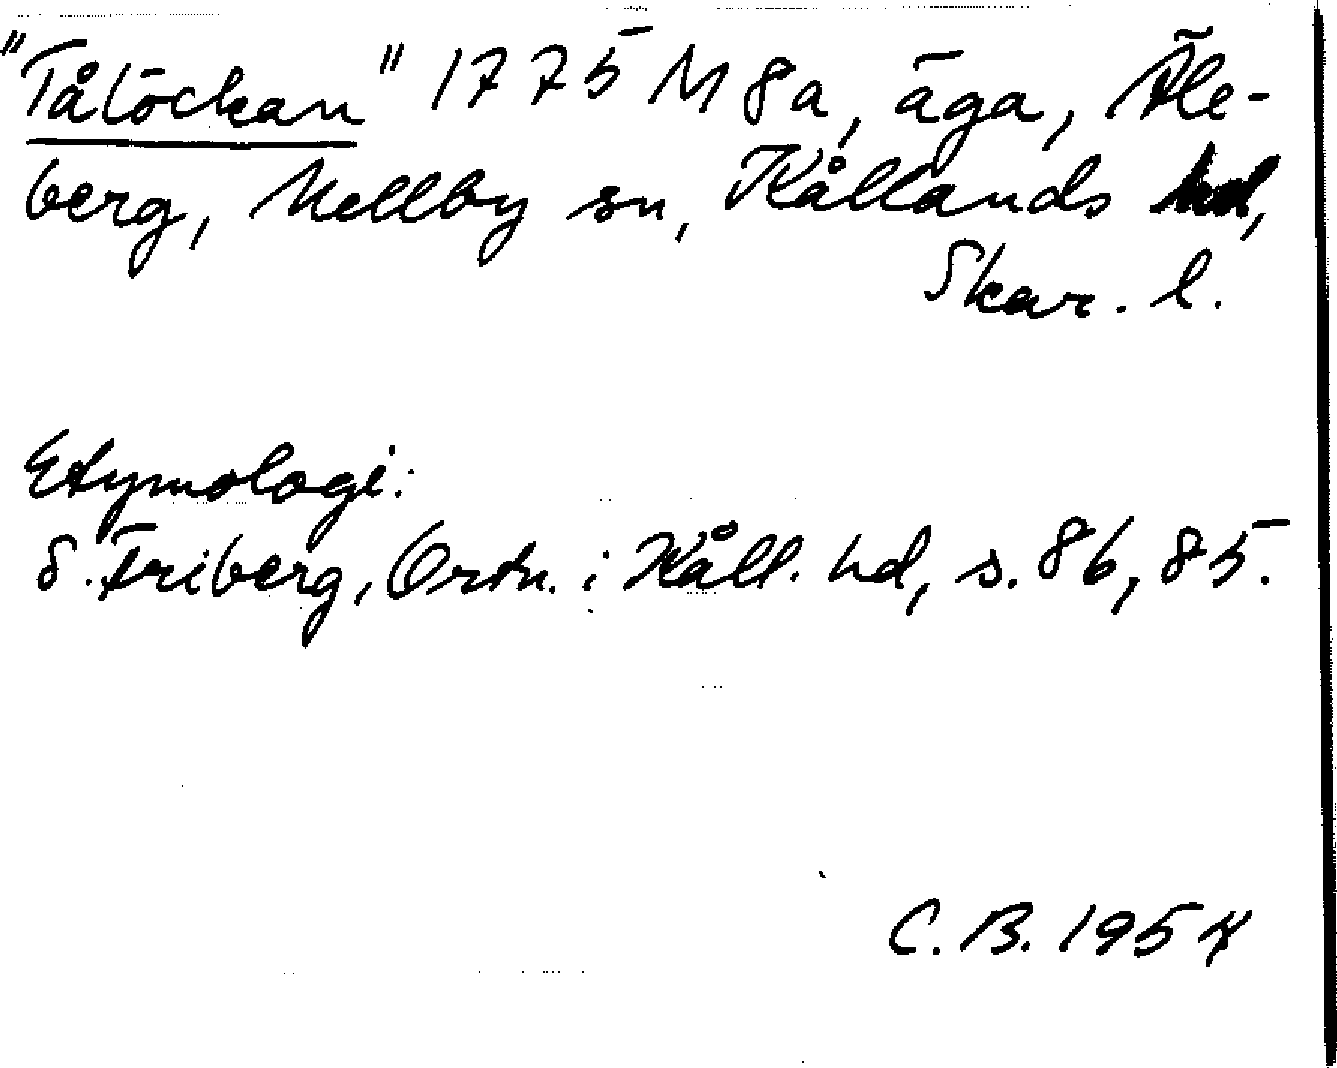 "Tålöckan" 1775 M 8a, äga, Åle-
berg, Mellby sn, Kållands hd,
Skar. l.
Etymologi:
S. Friberg, Ortn. i Kåll. hd, s. 86, 85.
C. B. 1954